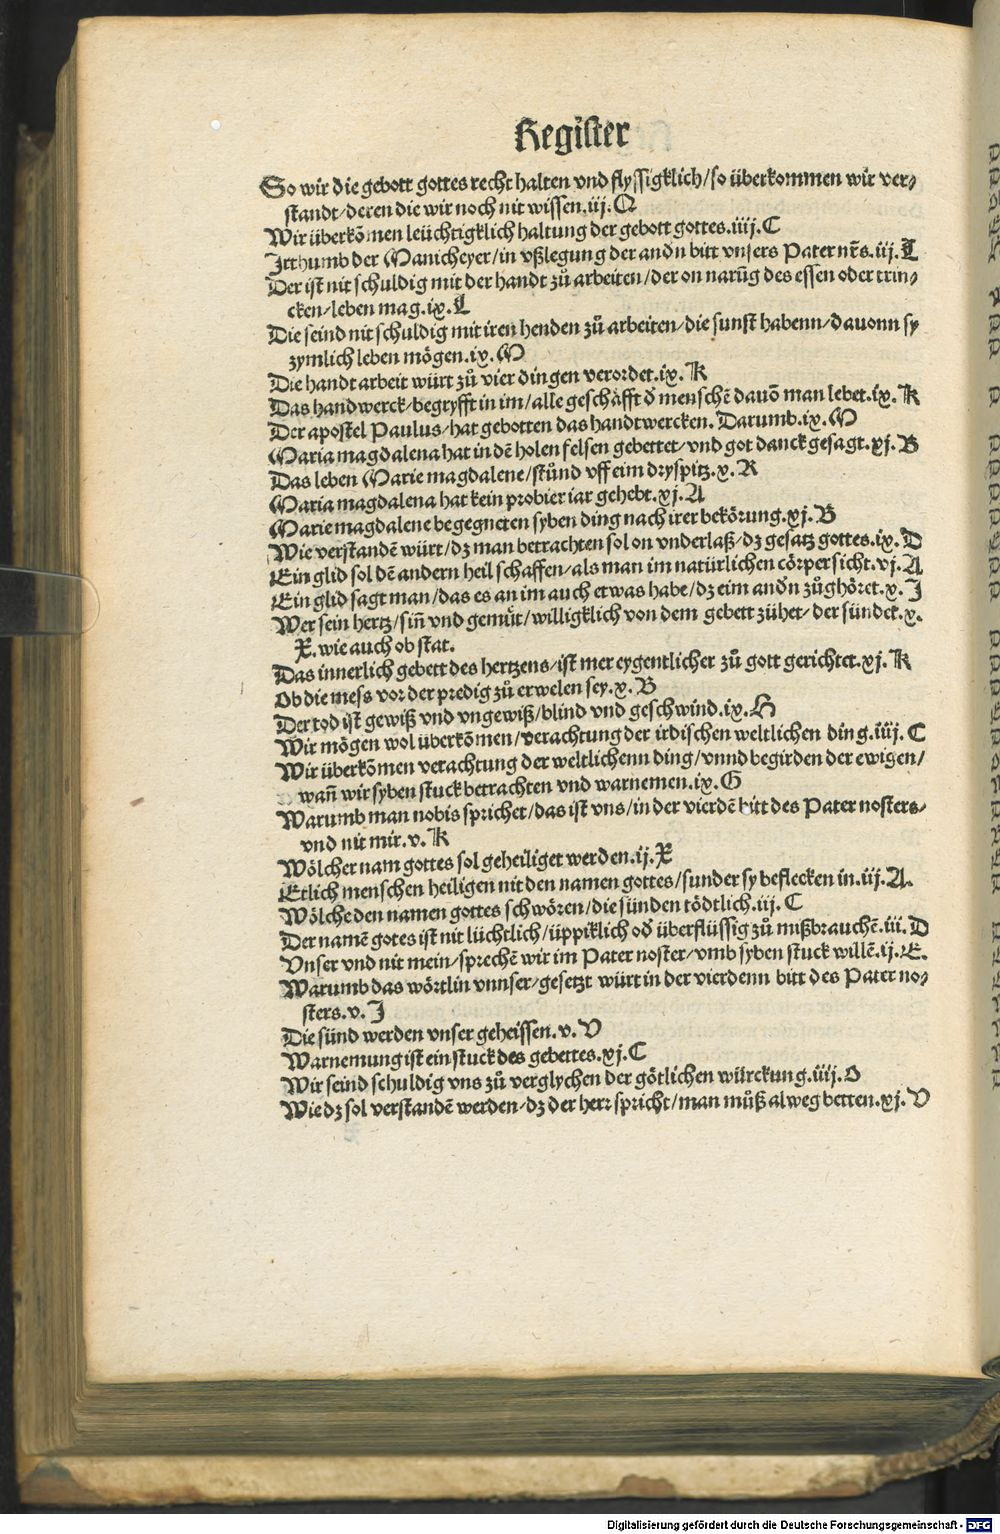 Register
So wir die gebott gottes recht halten vnd flyssigklich/so überkommen wir ver⸗
standt/deren die wir noch nit wissen.iij.Q
Wir überkõmen leüchtigklich haltung der gebott gottes.iiij.C
Irthumb der Manicheyer/in vßlegung der andn bitt vnsers Pater nr̃s.iij.L
Der ist nit schuldig mit der handt zů arbeiten/der on narũg des essen oder trin⸗
cken/leben mag.ix.L
Die seind nit schuldig mit iren henden zů arbeiten/die sunst habenn/dauonn sy
zymlich leben mögen.ix.M
Die handt arbeit würt zů vier dingen verordet.ix.K
Das handwerck/begryfft in im/alle geschäfft đ menschẽ dauõ man lebet.ix.K
Der apostel Paulus/hat gebotten das handtwercken. Darumb.ix.M
Maria magdalena hat in dẽ holen felsen gebettet/vnd got danck gesagt.xj.B
Das leben Marie magdalene/stůnd vff eim dryspitz.x.R
Maria magdalena hat kein probier iar gehebt.xj.A
Marie magdalene begegneten syben ding nach irer bekörung.xj.B
Wie verstandẽ würt/dz man betrachten sol on vnderlaß/dz gesatz gottes.ix.D
Ein glid sol dẽ andern heil schaffen/als man im natürlichen cörper sicht.vj.A
Ein glid sagt man/das es an im auch etwas habe/dz eim anđn zůghöret.x.I
Wer sein hertz/siñ vnd gemüt/willigklich von dem gebett züher/der sündet.x.
X.wie auch ob stat.
Das innerlich gebett des hertzens/ist mer eygentlicher zů gott gerichtet.xj.K
Ob die mess vor der predig zů erwelen sey.x.B
Der tod ist gewiß vnd vngewiß/blind vnd geschwind.ix.H
Wir mögen wol überkõmen/verachtung der irdischen weltlichen ding.iiij.C
Wir überkõmen verachtung der weltlichenn ding/vnnd begirden der ewigen/
wañ wir syben stuck betrachten vnd warnemen.ix.G
Warumb man nobis sprichet/das ist vns/in der vierdẽ bitt des Pater nosters/
vnd nit mir.v.K
Wölcher nam gottes sol geheiliget werden.ij.X
Etlich menschen heiligen nit den namen gottes/sunder sy beflecken in.iij.A.
Wölche den namen gottes schwören/die sünden tödtlich.iij.C
Der namẽ gotes ist nit lüchtlich/üppiklich ođ überflüssig zů mißbrauchẽ.iii.D
Vnser vnd nit mein/sprechẽ wir im Pater noster/vmb syben stuck willẽ.ij.E.
Warumb das wörtlin vnnser/gesetzt würt in der vierdenn bitt des Pater no⸗
sters.v.I
Die sünd werden vnser geheissen.v.V
Warnemung ist ein stuck des gebettes.xj.C
Wir seind schuldig vns zů verglychen der götlichen würckung.iiij.O
Wie dz sol verstandẽ werden/dz der herr spricht/man můß alweg betten.xj.V
Digitalisierung gefördert durch die Deutsche Forschungsgemeinschaft - DFG